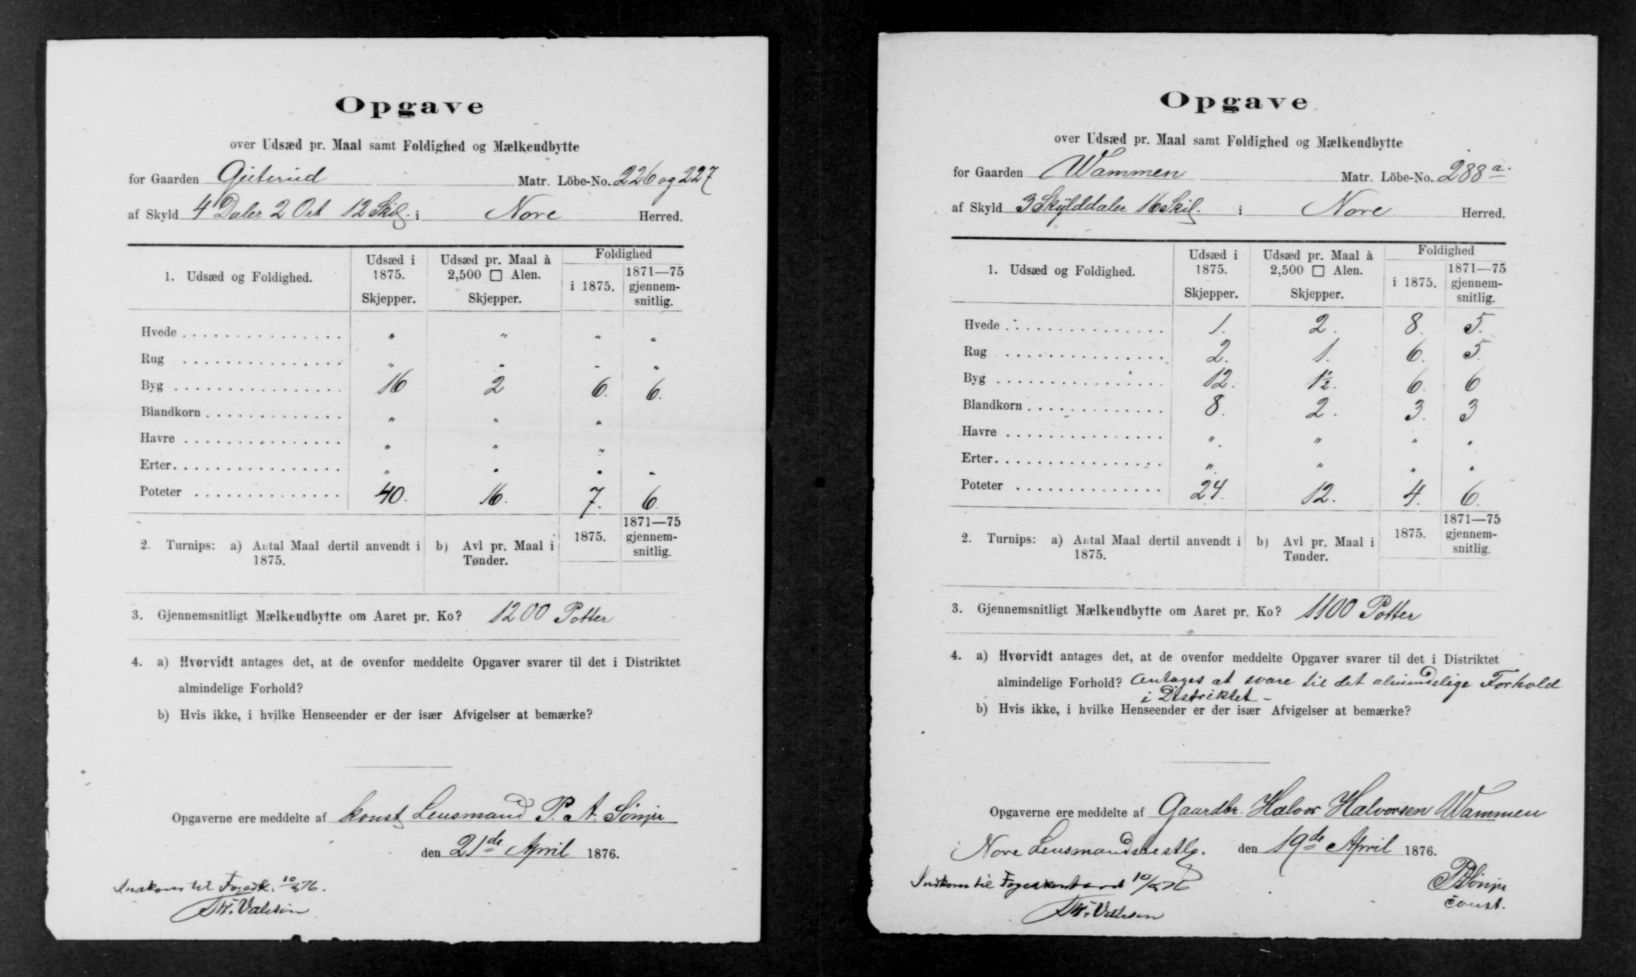 Opgave
over Udsæd pr. Maal samt Foldighed og Mælkeudbytte
for Gaarden Gjiterud Matr. Löbe-No. 226 og 227
af Skyld 4 Daler 2 Ort 12 Skil. i Nore Herred.
1. Udsæd og Foldighed. Udsæd i 1875. Skjepper. Udsæd pr. Maal à 2,500 □ Alen. Skjepper. Foldighed i 1875. 1871—75 gjennem-snitlig.
Hvede . . . . . . . . . . . . . . . " " " "
Rug . . . . . . . . . . . . . . . " " " "
Byg . . . . . . . . . . . . . . . 16 2 6. 6.
Blandkorn . . . . . . . . . . . . . " " "
Havre . . . . . . . . . . . . . . . " " "
Erter . . . . . . . . . . . . . . . " " " "
Poteter . . . . . . . . . . . . . . 40. 16. 7. 6.
2. Turnips: a) Antal Maal dertil anvendt i 1875. b) Avl pr. Maal i Tønder. 1875. 1871—75 gjennem-snitlig.
3. Gjennemsnitligt Mælkeudbytte om Aaret pr. Ko? 1200 Potter
4. a) Hvorvidt antages det, at de ovenfor meddelte Opgaver svarer til det i Distriktet
almindelige Forhold?
b) Hvis ikke, i hvilke Henseender er der især Afvigelser at bemærke?
Opgaverne ere meddelte af konst Lensmand P. A. Sønju
den 21de April 1876.
Indkom til Fogedk. 10/5 76.
Opgave
over Udsæd pr. Maal samt Foldighed og Mælkeudbytte
for Gaarden Wammen Matr. Löbe-No. 288 a.
af Skyld 3 Skylddaler 16 Skil. i Nore Herred.
1. Udsæd og Foldighed. Udsæd i 1875. Skjepper. Udsæd pr. Maal à 2,500 □ Alen. Skjepper. Foldighed i 1875. 1871—75 gjennem-snitlig.
Hvede . . . . . . . . . . . . . . . 1. 2. 8. 5.
Rug . . . . . . . . . . . . . . . 2. 1. 6. 5
Byg . . . . . . . . . . . . . . . 12. 1½. 6. 6
Blandkorn . . . . . . . . . . . . . 8. 2. 3. 3
Havre . . . . . . . . . . . . . . . " " " "
Erter . . . . . . . . . . . . . . . " " " "
Poteter . . . . . . . . . . . . . . 24. 12. 4. 6.
2. Turnips: a) Antal Maal dertil anvendt i 1875. b) Avl pr. Maal i Tønder. 1875. 1871—75 gjennem-snitlig.
3. Gjennemsnitligt Mælkeudbytte om Aaret pr. Ko? 1100 Potter
4. a) Hvorvidt antages det, at de ovenfor meddelte Opgaver svarer til det i Distriktet
almindelige Forhold? Antages at svare til det almindelige Forhold
i Distriktet -
b) Hvis ikke, i hvilke Henseender er der især Afvigelser at bemærke?
Opgaverne ere meddelte af Gaardbr. Halvor Halvorsen Wammen
Nore Lensmandsbestlg. den 19de April 1876.
Indkom til Fogedkontoret 10/5 76
PASønju
const.